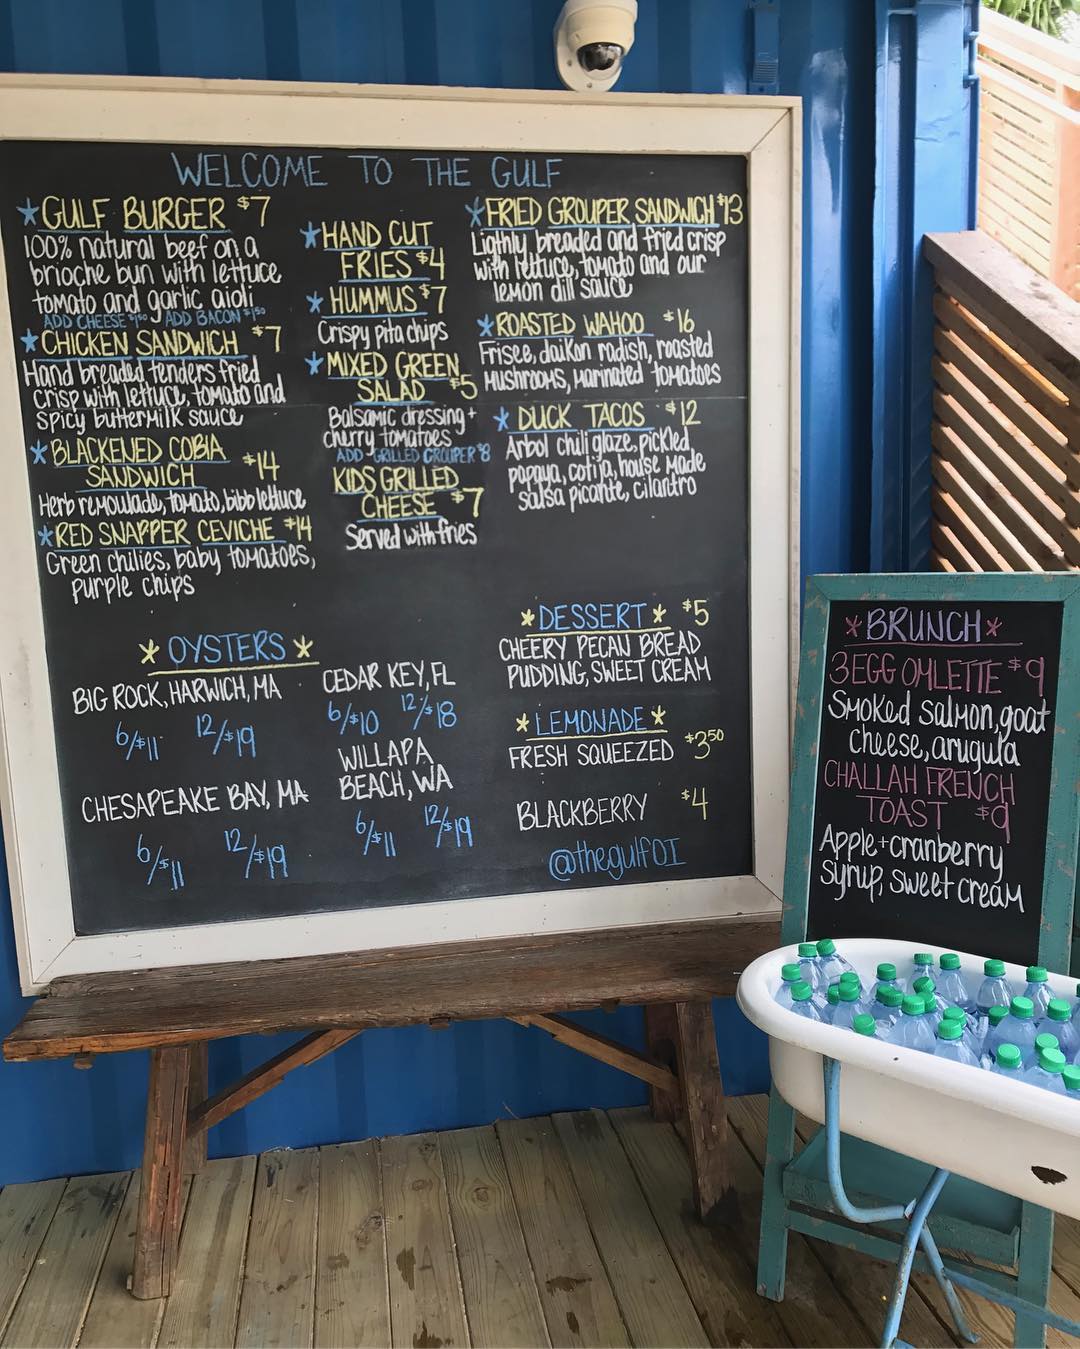 WELCOME TO THE GULF
*GULF BURGER $7
100% natural beef on a
brioche bun with lettuce
tomato and garlic aioli
ADD CHEESE $1.50 ADD BACON $1.50
*CHICKEN SANDWICH $7
Hand breaded tenders fried
crisp with lettuce, tomato and
spicy buttermilk sauce
*BLACKENED COBIA
SANDWICH $14
Herb remoulade, tomato, bibb lettuce
*RED SNAPPER CEVICHE $14
Green chilies, baby tomatoes,
purple chips
*HAND CUT
FRIES $4
*HUMMUS $7
Crispy pita chips
*MIXED GREEN
SALAD $5
Balsamic dressing +
cherry tomatoes
ADD GRILLED GROUPER $8
KIDS GRILLED
CHEESE $7
Served with fries
*FRIED GROUPER SANDWICH $13
Ligthly breaded and fried crisp
with lettuce, tomato and our
lemon dill sauce
*ROASTED WAHOO $16
Frisee, daikon radish, roasted
mushrooms, marinated tomatoes
*DUCK TACOS $12
Arbol chili glaze, pickled
papaya, cotija, house made
salsa picante, cilantro
*OYSTERS*
BIG ROCK, HARWICH, MA
6/$11 12/$19
CHESAPEAKE BAY, MA
6/$11 12/$19
CEDAR KEY, FL
6/$10 12/$18
WILLAPA
BEACH, WA
6/$11 12/$19
*DESSERT* $5
CHEERY PECAN BREAD
PUDDING, SWEET CREAM
*LEMONADE*
FRESH SQUEEZED $3.50
BLACKBERRY $4
@thegulfOI
*BRUNCH*
3 EGG OMLETTE $9
Smoked salmon, goat
cheese, arugula
CHALLAH FRENCH
TOAST $9
Apple + cranberry
syrup, sweet cream